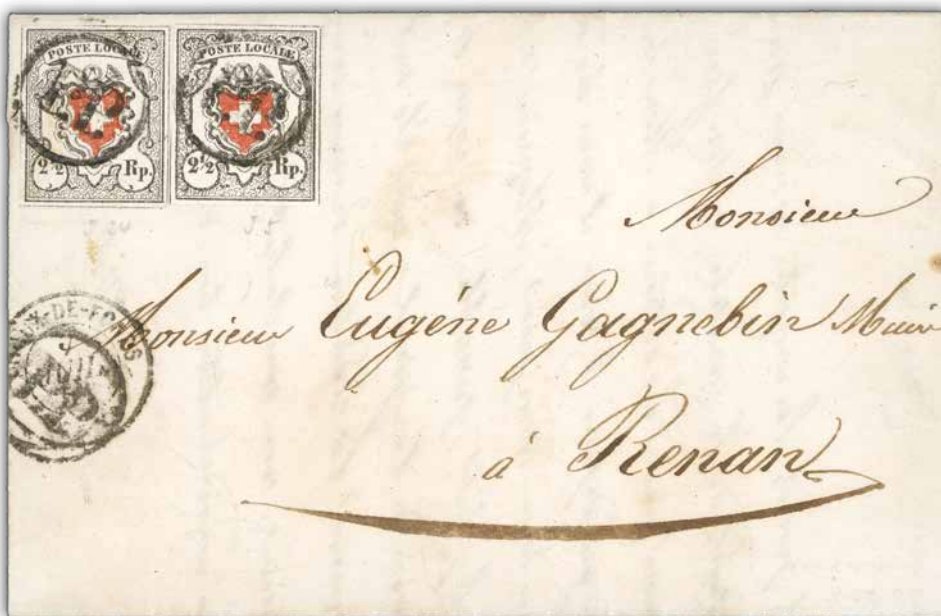 POSTE LOCALE POSTE LOCALE
2½ Rp. 2½ Rp.
Monsieur
Monsieur Eugéne Gagnebin Maire
à Renan